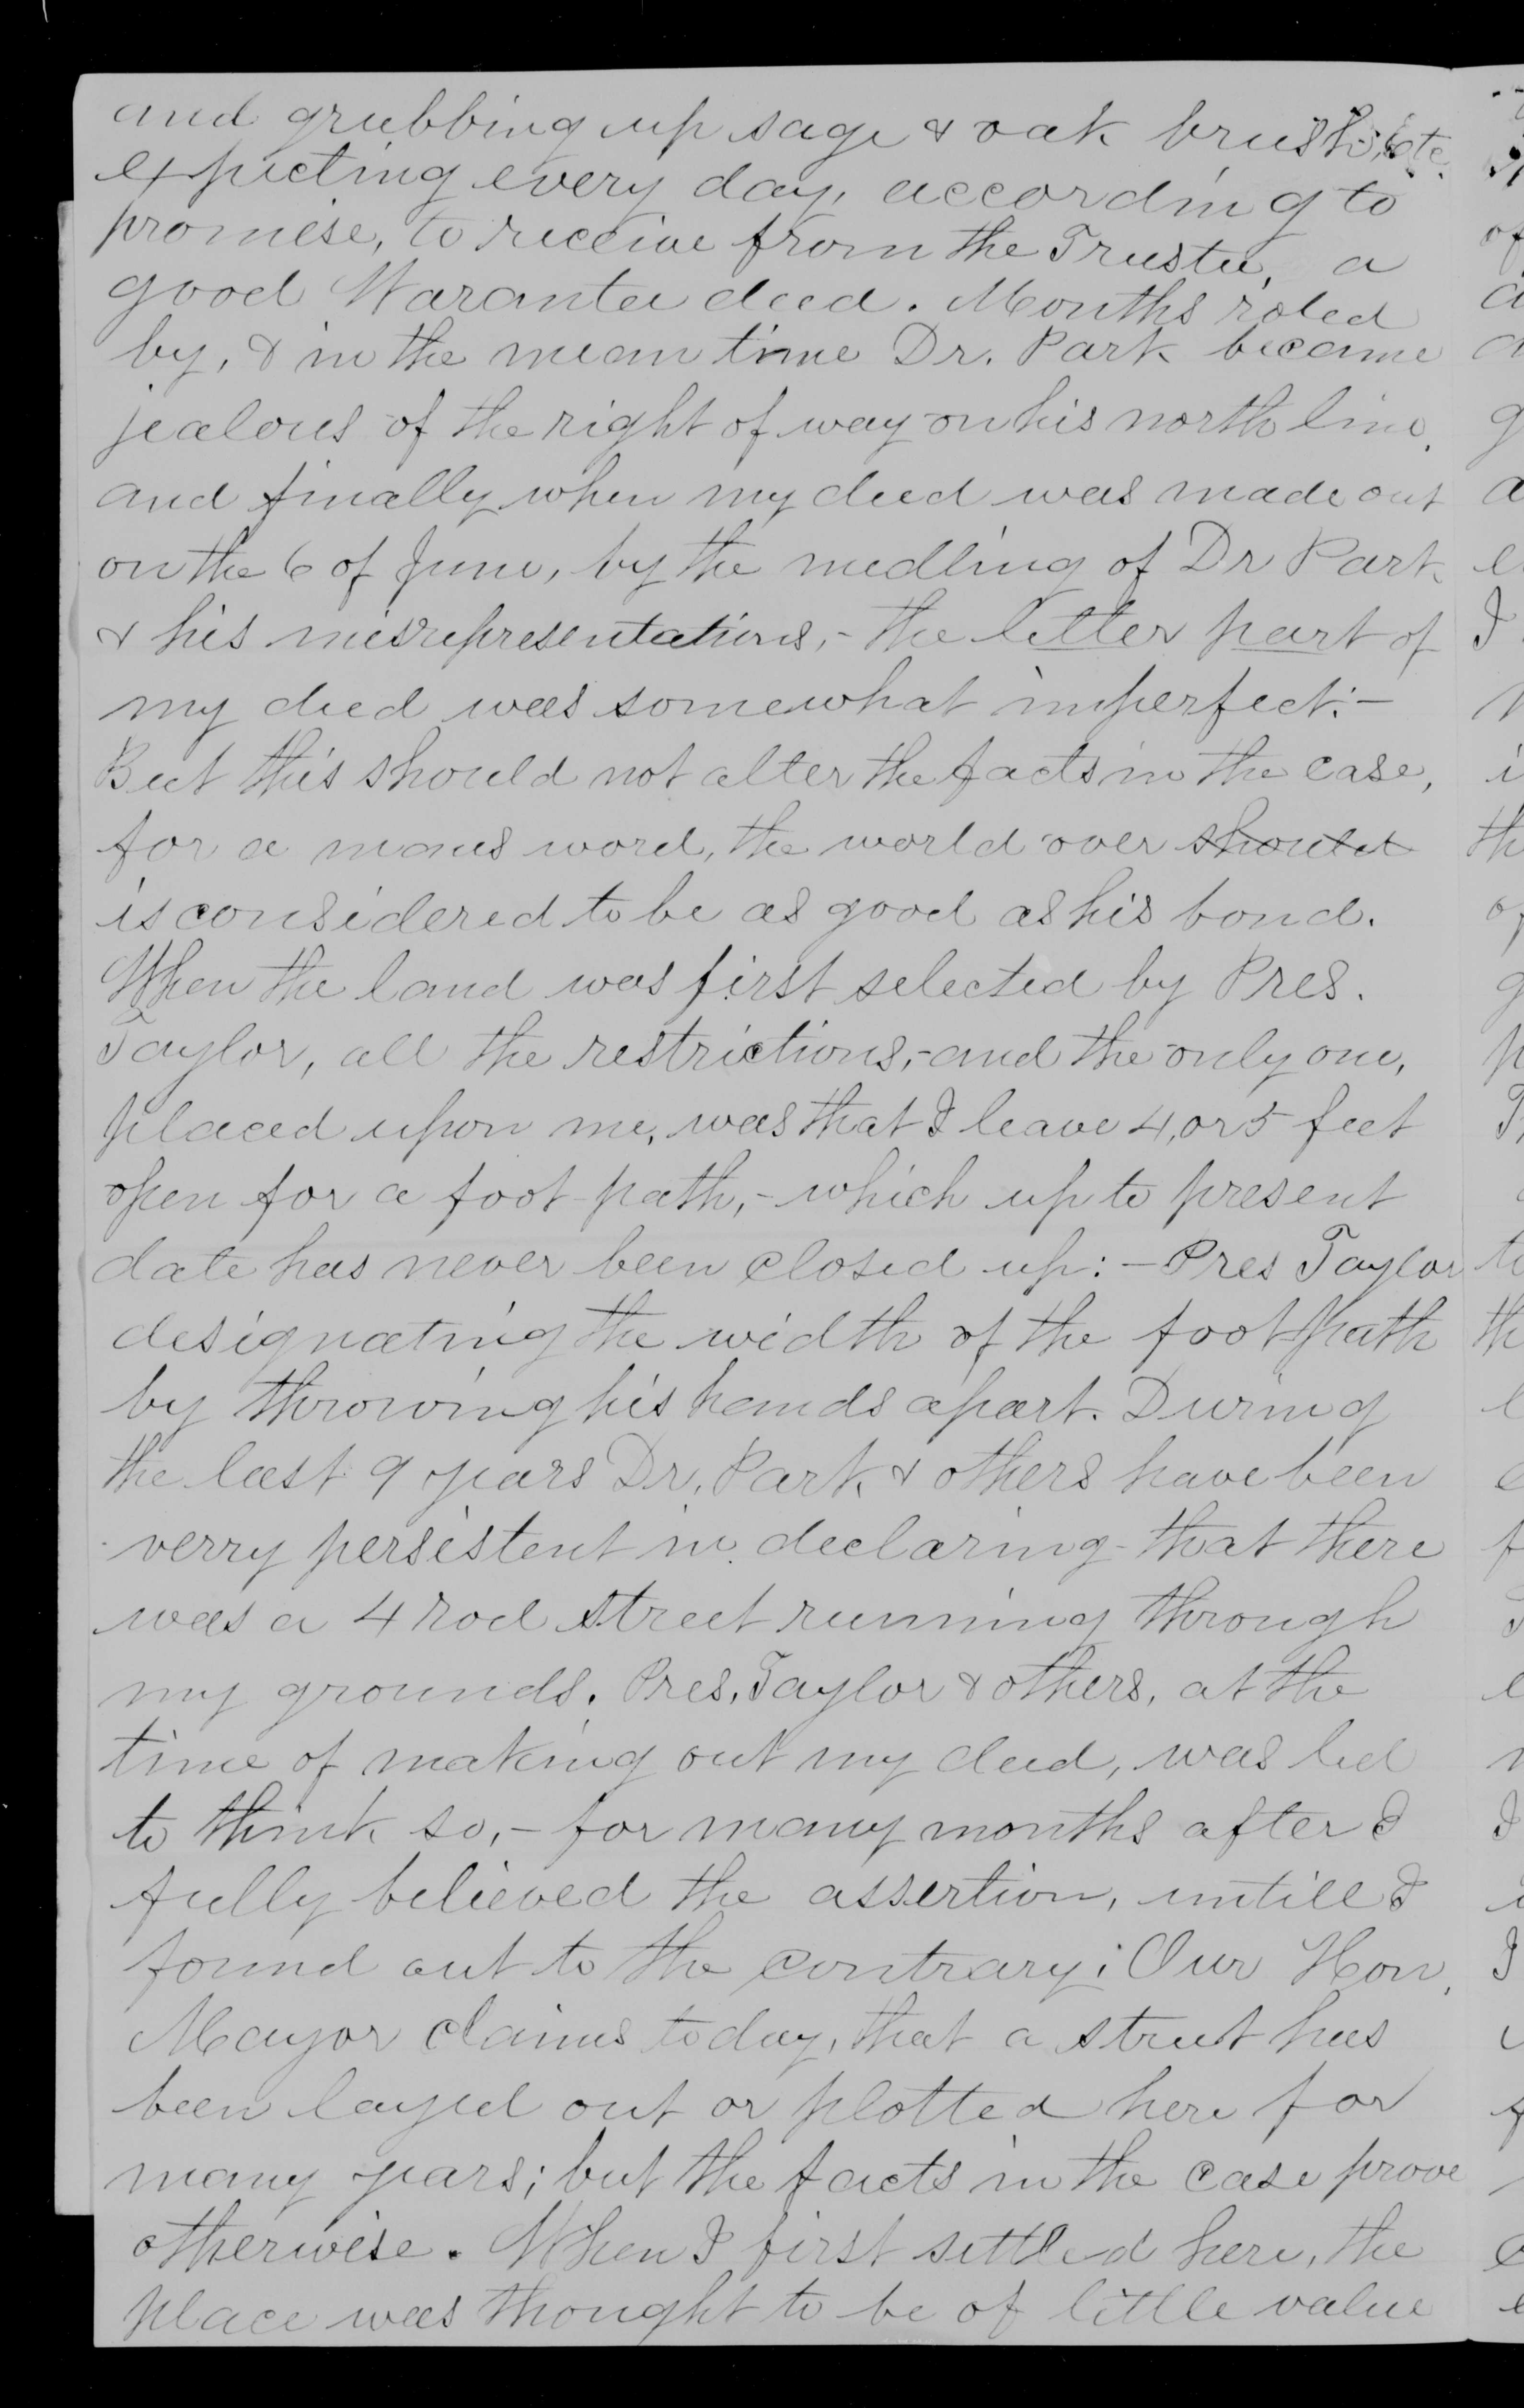 and grubbing up sage & oak brush, etc.
expecting every day, according to
promise, to receive from the Trustee, a
good Warantee deed. Months roled
by, & in the mean time Dr. Park became
jealous of the right of way on his north line,
and finally when my deed was made out
on the 6 of June, by the medling of Dr Park
& his misrepresentations, - the letter part of
my deed was somewhat imperfect: -
But this should not alter the facts in the case,
for a mans word, the world over should
is considered to be as good as his bond.
When the land was first selected by Pres.
Taylor, all the restrictions, - and the only one,
placed upon me, was that I leave 4, or 5 feet
open for a foot path, - which up to present
date has never been closed up: - Pres Taylor
designating the width of the foot path
by throwing his hands apart. During
the last 9 years Dr. Park & others have been
verry persistent in declaring that there
was a 4 rod street running through
my grounds. Pres. Taylor & others, at the
time of making out my deed, was led
to think so, - for many months after I
fully believed the assertion, untill I
found out to the contrary; Our Hon,
Mayor claims today, that a street has
been layed out or plotted here for
many years; but the facts in the case prove
otherwise. When I first settled here, the
place was thought to be of little value